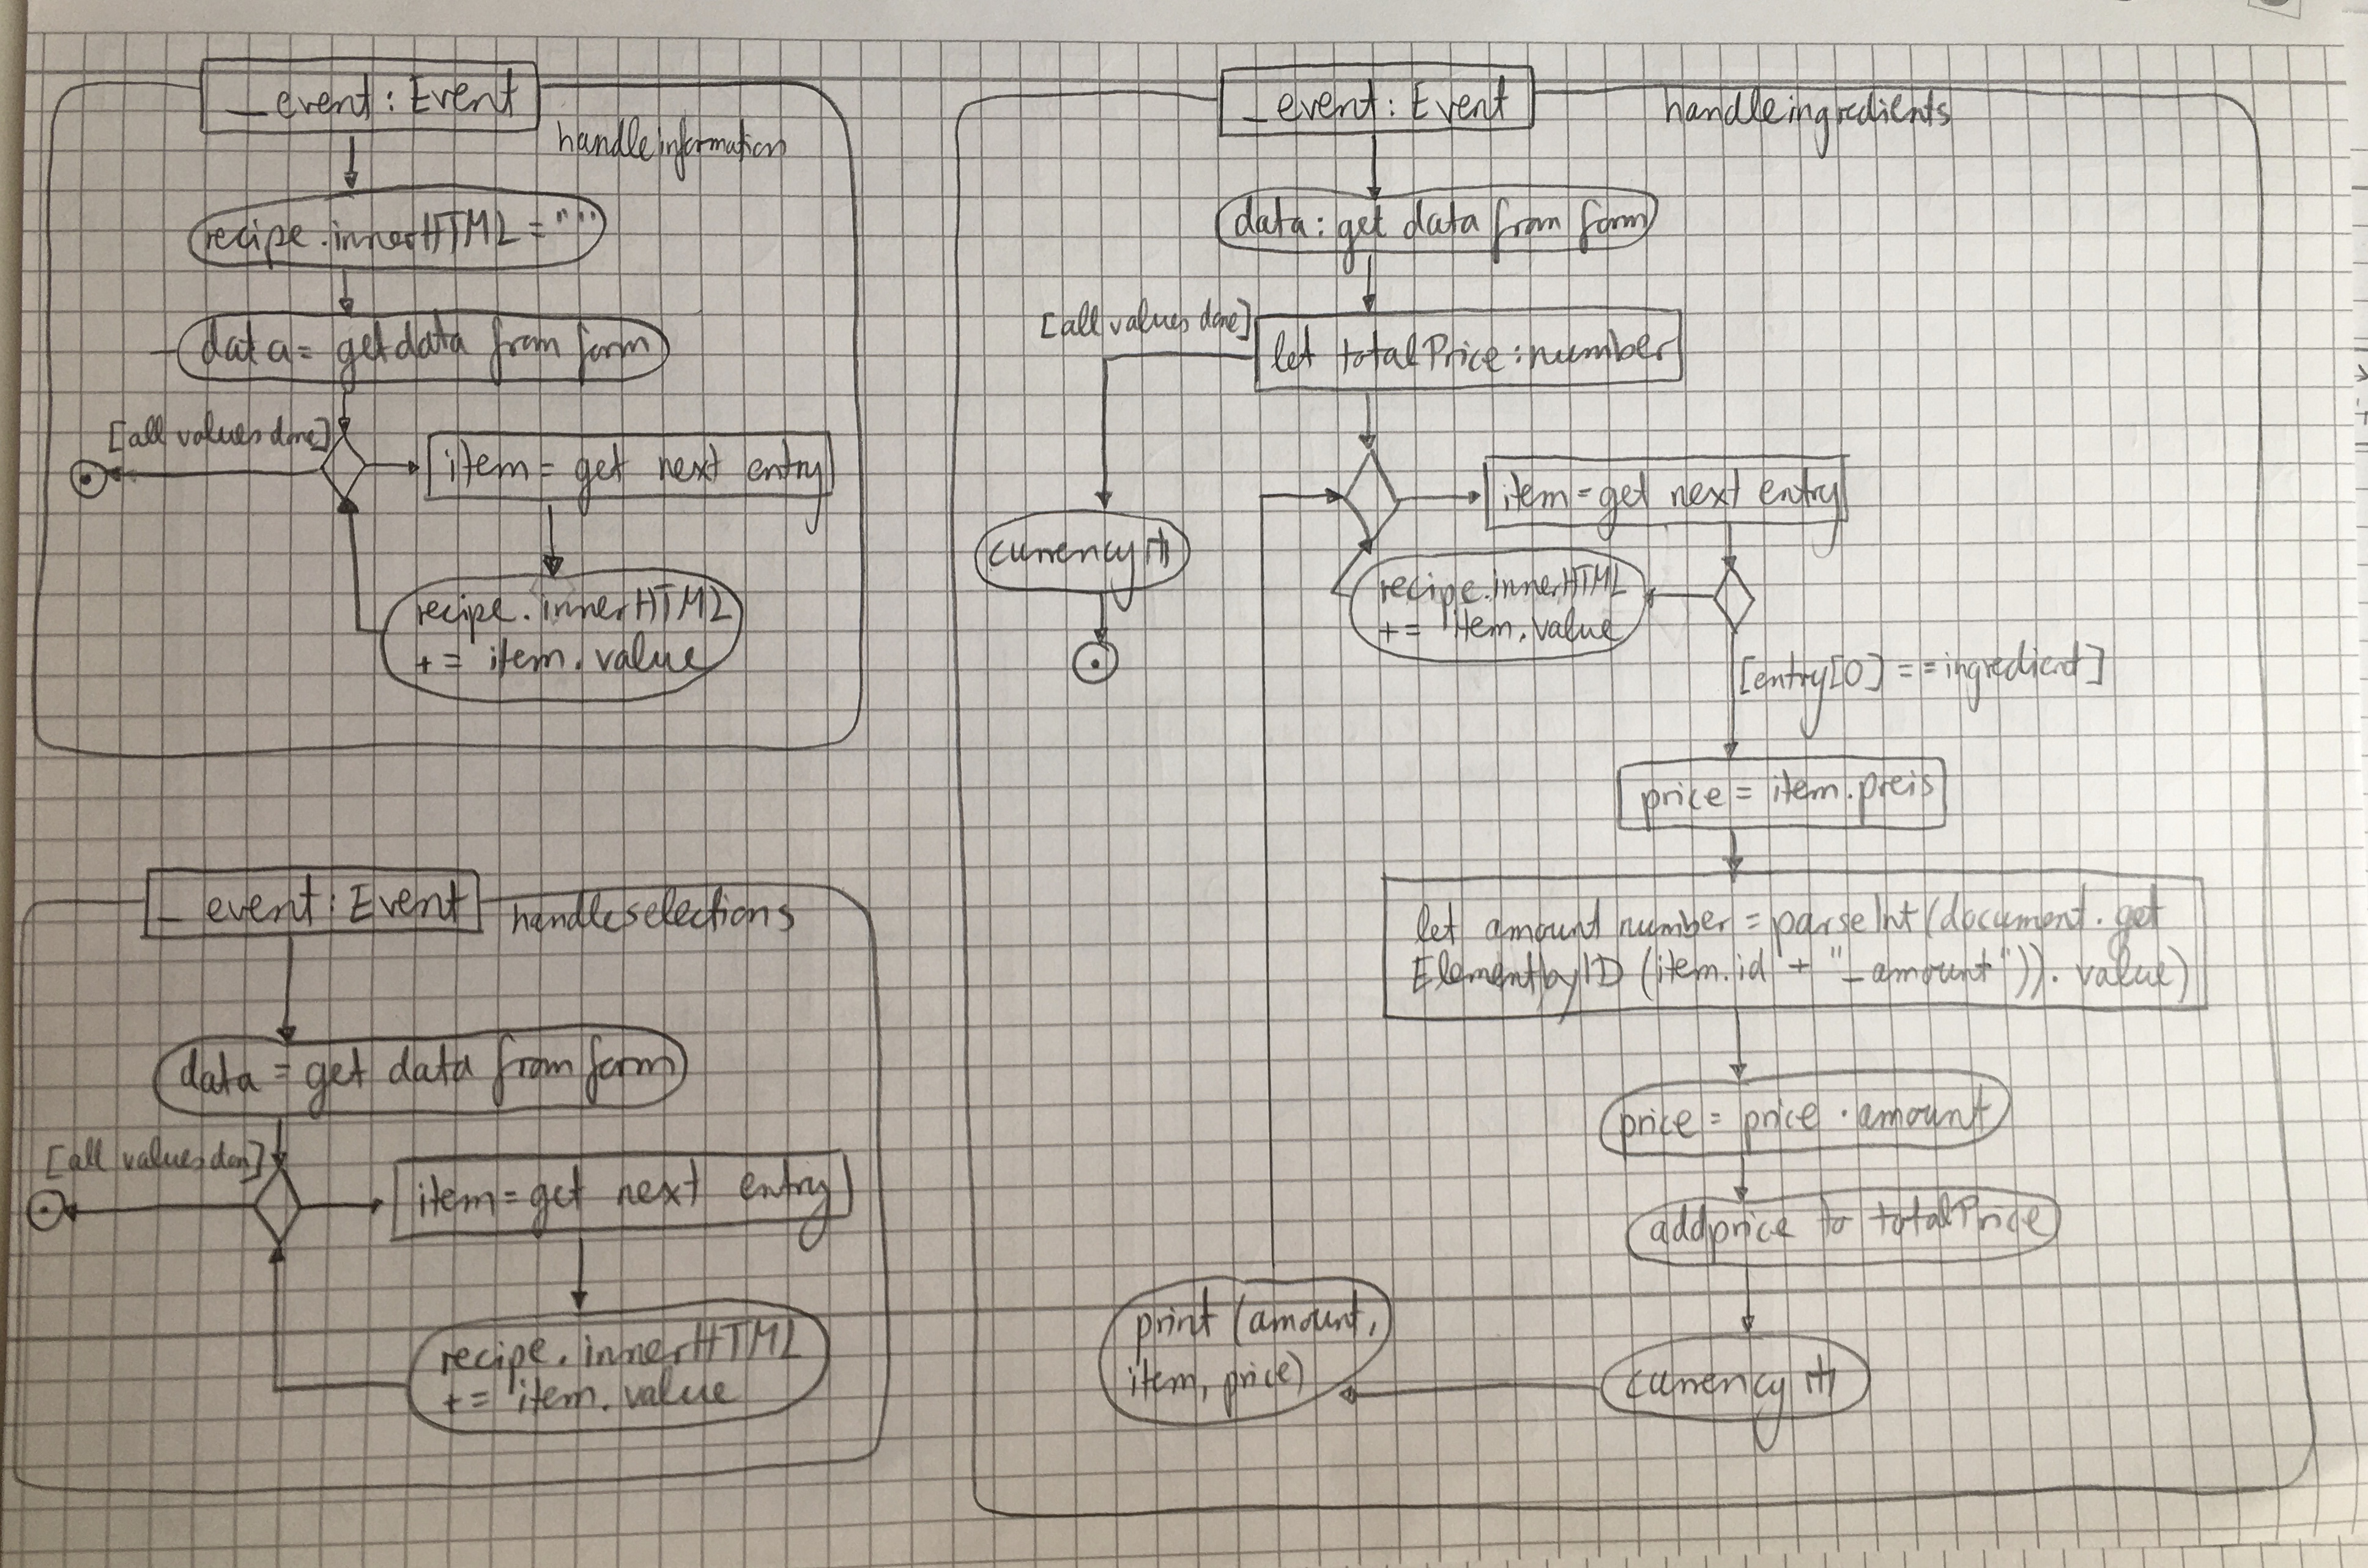 _event: Event
handleinformation
recipe.innerHTML = ""
data = get data from form
[all values done]
item = get next entry
recipe.innerHTML
+= item.value
_event: Event
handleselections
data = get data from form
[all values don]
item = get next entry
recipe.innerHTML
+= item.value
_event: Event
handleingredients
data: get data from form
[all values done]
let totalPrice: number
item = get next entry
currency
recipe.innerHTML
+= item.value
[entry[0] == ingredient]
price = item.preis
let amount number = parseInt(document.get
ElementbyID (item.id + "_amount")).value)
price = price · amount
addprice to totalPrice
print (amount,
item, price)
currency